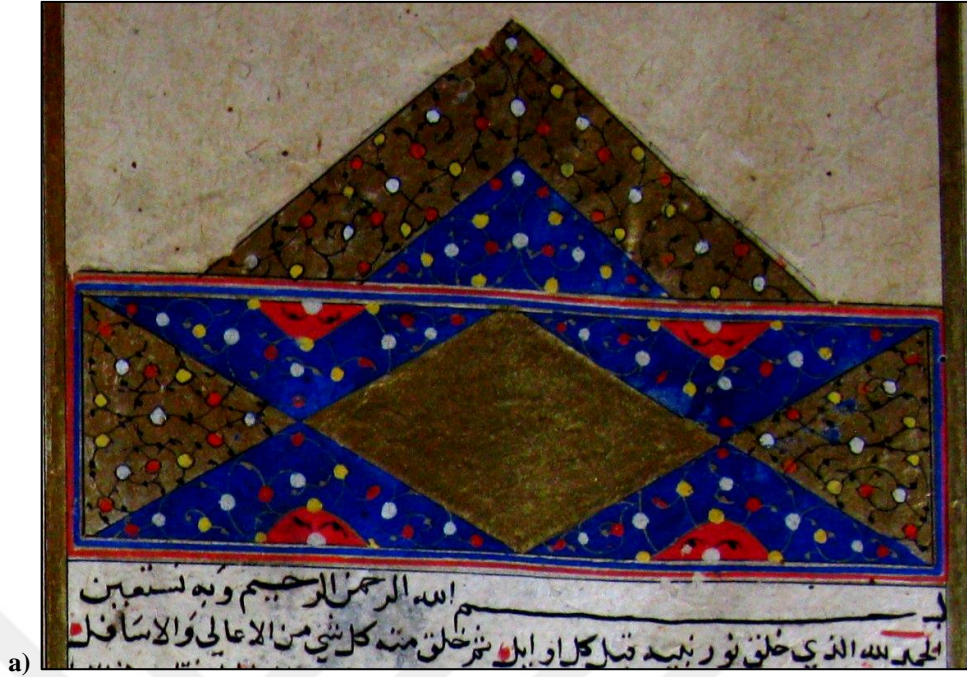 بسم الله الرحمن الرحيم وبه نستعين
الحمد لله الذي خلق نور نبيه قبل كل اوايل ثم خلق منه كل شي من الاعالي والاسافل
a)